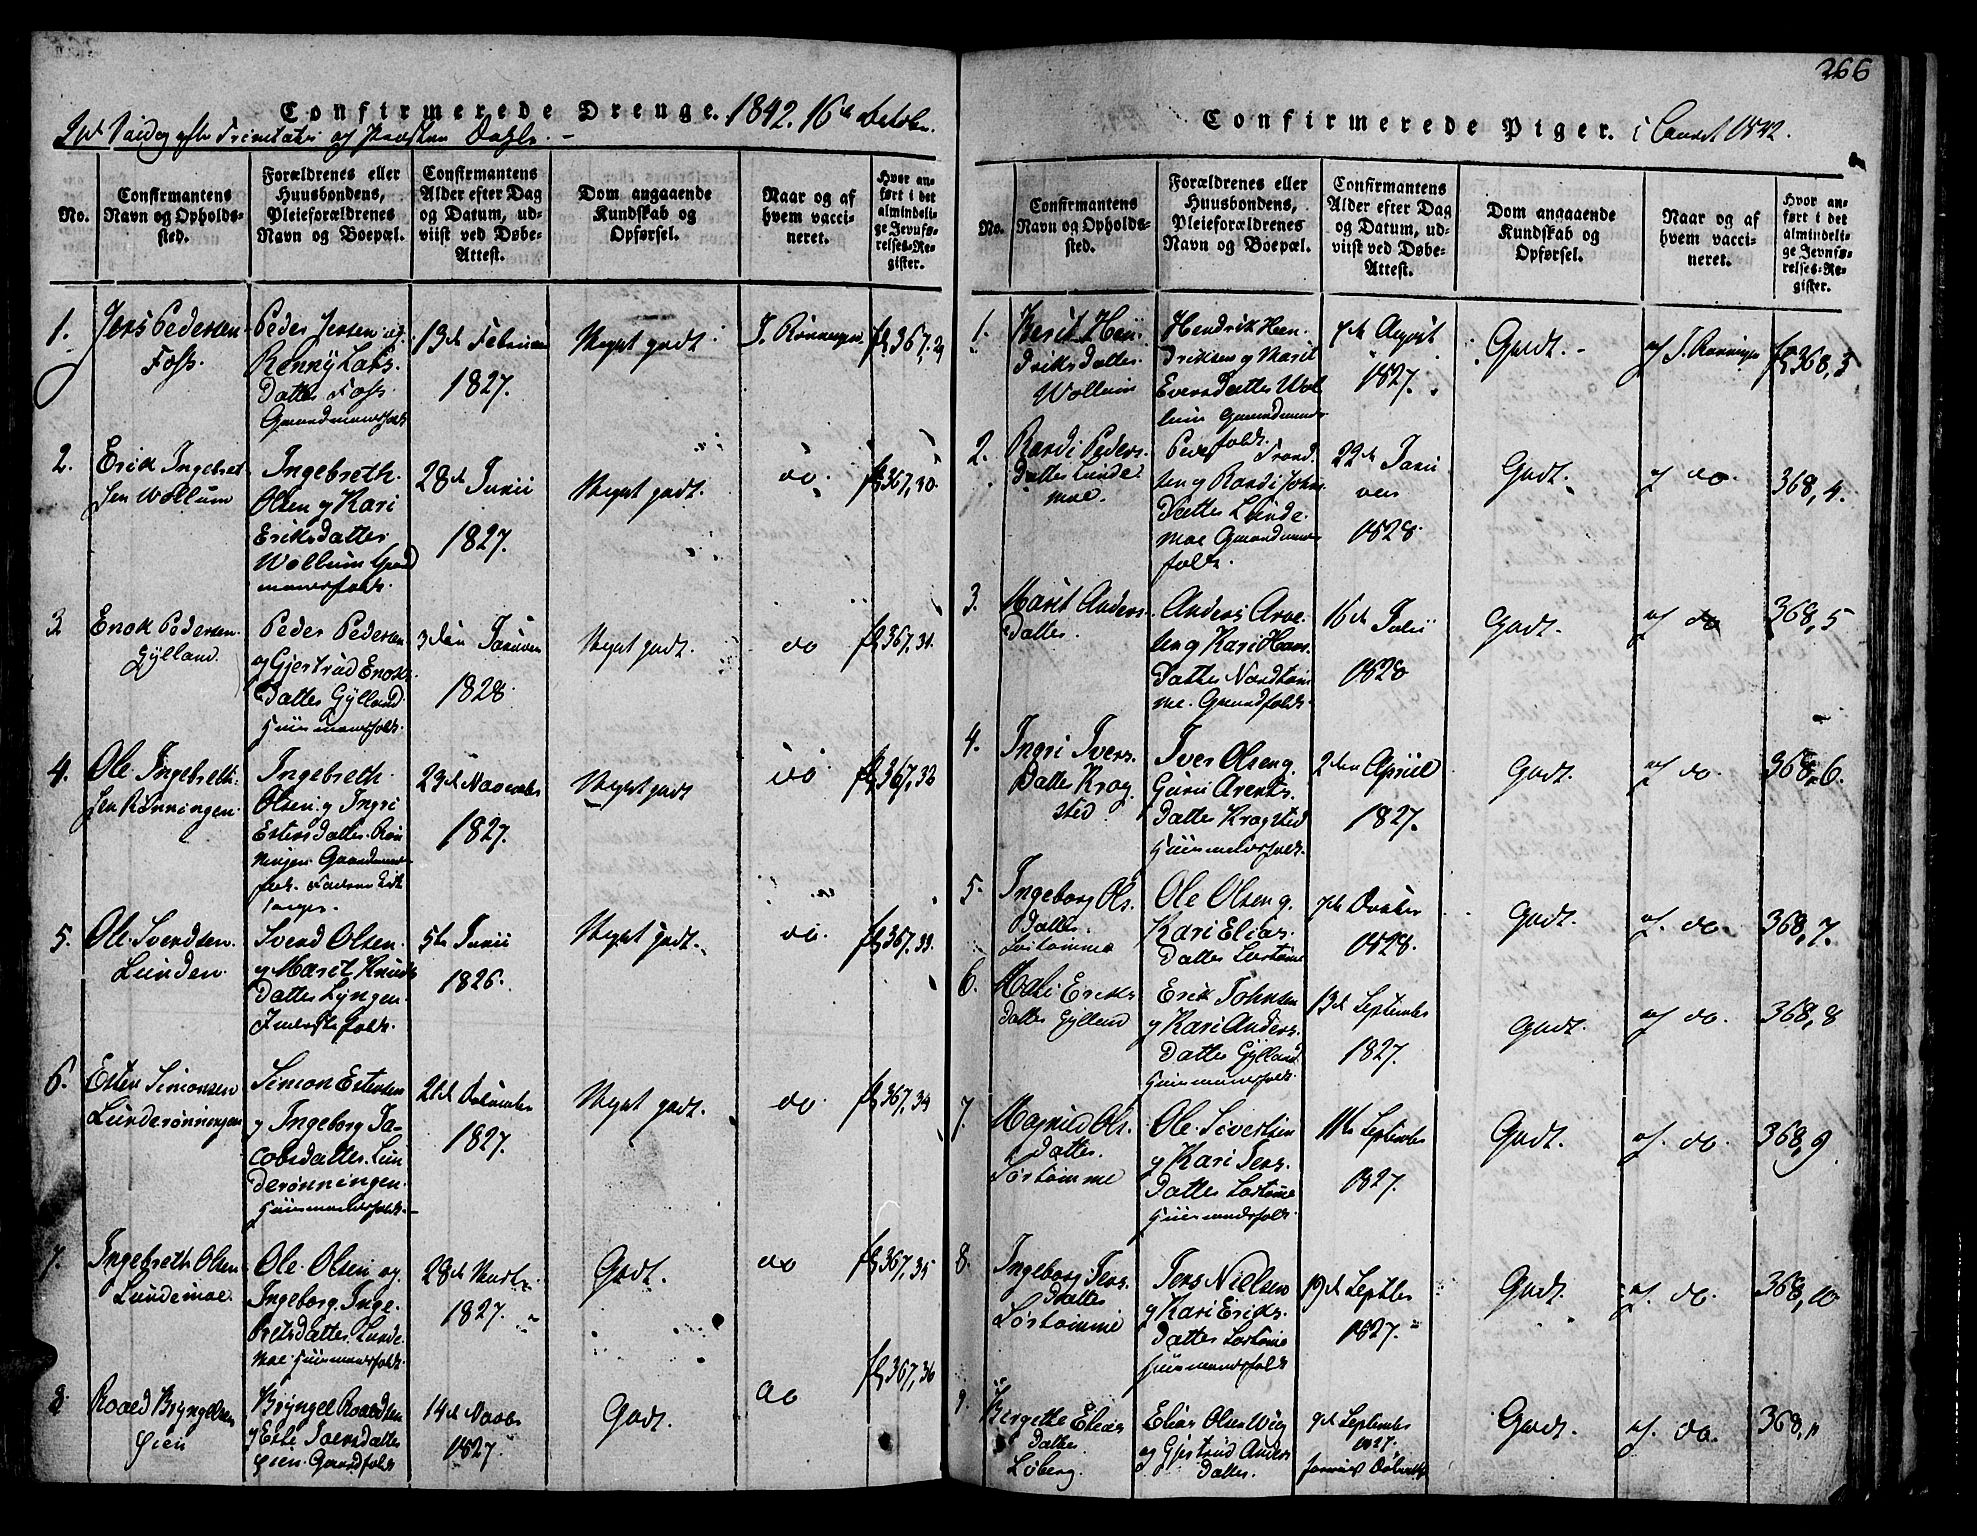 Confirmerede Drenge. 1842. 16de October.
efter Trinitatis af Præsten
No.
Confirmantens Navn og Opholdssted.
Forældrenes eller Huusbondens, Pleieforældrenes Navn og Boepæl.
Confirmantens Alder efter Dag og Datum, udviist ved Døbe-Attest.
Dom angaaende Kundskab og Opførsel.
Naar og af hvem vaccineret.
Hvor anført i det almindelige Jevnførelses-Register.
1.
Jens Pedersen
Foss.
Peder Jensen og
Renny Lars
Datter Foss
Gaardmandsfolk
13de Februar
1827.
Meget godt
J. Rønningen
fol 367, 29
2.
Erik Ingebret
sen Wollum
Ingebreth
Olsen og Kari
Eriksdatter
Wollum Gaard
mandsfolk.
28de Junii
1827.
Meget godt.
do.
fol 367, 30.
3
Enok Pedersen
Gylland.
Peder Pedersen
og Gjertrud Enoks
Datter Gylland
Huusmandsfolk.
3den Januar
1828.
Meget godt.
do
fol 367, 31.
4.
Ole Ingebreth
sen Rønningen.
Ingebreth
Olsen og Ingri
Estensdatter Røn
ningen Gaardmands
folk.
23de November
1827.
Meget godt
do
fol 367, 32
5.
Ole Svendsen
Lunden.
Svend Olsen
og Marit Knuds
Datter Lyngen
Inderstefolk.
5te Junii
1826.
Meget godt.
do.
fol 367, 33.
6.
Esten Simonsen
Lunderønningen
Simon Estensen
og Ingeborg Ja
cobsdatter Lun
derønningen.
Huusmandsfolk.
21de December
1827.
Meget godt.
do.
fol 367, 34
7.
Ingebreth Olsen
Lundemoe.
Ole Olsen og
Ingeborg Inge
bretsdatter Lunde
moe Huusmandsfolk.
28de Marts
1827.
Godt.
do
fol 367, 35
8
Roald Bryngelsen
Øien
Bryngel Roaldsen
og Eli Iversdatter
Øien. Gaardfolk
14de Novbr
1827.
Godt.
do
fol 367, 36
266
Confirmerede Piger. i Aaret 1842.
No.
Confirmantens Navn og Opholdssted.
Forældrenes eller Huusbondens, Pleieforældrenes Navn og Boepæl.
Confirmantens Alder efter Dag og Datum, udviist ved Døbe-Attest.
Dom angaaende Kundskab og Opførsel.
Naar og af hvem vaccineret.
Hvor anført i det almindelige Jevnførelses-Register.
1.
Berit Hen
driksdatter
Wollum
Hendrik Hen
driksen og Marit
Evensdatter Wol
lum Gaardmands
folk.
7de August
1827.
Godt.
af J. Rønningen
fol 368, 3
2.
Randi Peders
Datter Lunde
moe.
Peder Trond
sen og Randi John
Datter Lunde
moe Gaardmands
folk.
22de Janu
ar
1828.
Godt.
af do.
368, 4.
3.
Marit Anders
Datter.
Anders Arne
sen og Kari Hans
Datter Nordtøm
me. Gaardfolk.
16de Julii
1828
Godt.
af do
368, 5
4.
Ingri Ivers
Datter Krog
sted
Iver Olsen og
Guru Arents
Datter Krogsted
Huusmandsfolk.
2den April
1827.
Godt.
af do.
368, 6.
5.
Ingeborg Ols
Datter
Sørtømme
Ole Olsen og
Kari Elias
Datter Sørtøme
7de October
1828.
Godt.
af. do.
368, 7.
6.
Mali Eriks
Datter Gylland
Erik Johnsen
og Kari Anders
Datter Gylland
Huusmandsfolk.
13de September
1827.
Godt.
af do.
368, 8
7.
Magnild Ols
Datter.
Sørtømme
Ole Sivertsen
og Kari Jens
Datter Sørtøme
Huusmandsfolk.
11te September
1827.
Godt.
af. do.
368, 9
8.
Ingeborg Jens
Datter
Sørtømme
Jens Nielsen
og Kari Eriks
Datter Sørtøme
Huusmandsfolk
19de Septbr
1827.
Godt.
af. do.
368, 10
9.
Bergethe Elias
Datter
Løberg.
Elias Olsen Wiig
og Gjertrud Anders
Datter.
9de September
1827.
Godt.
af. do.
368, 11